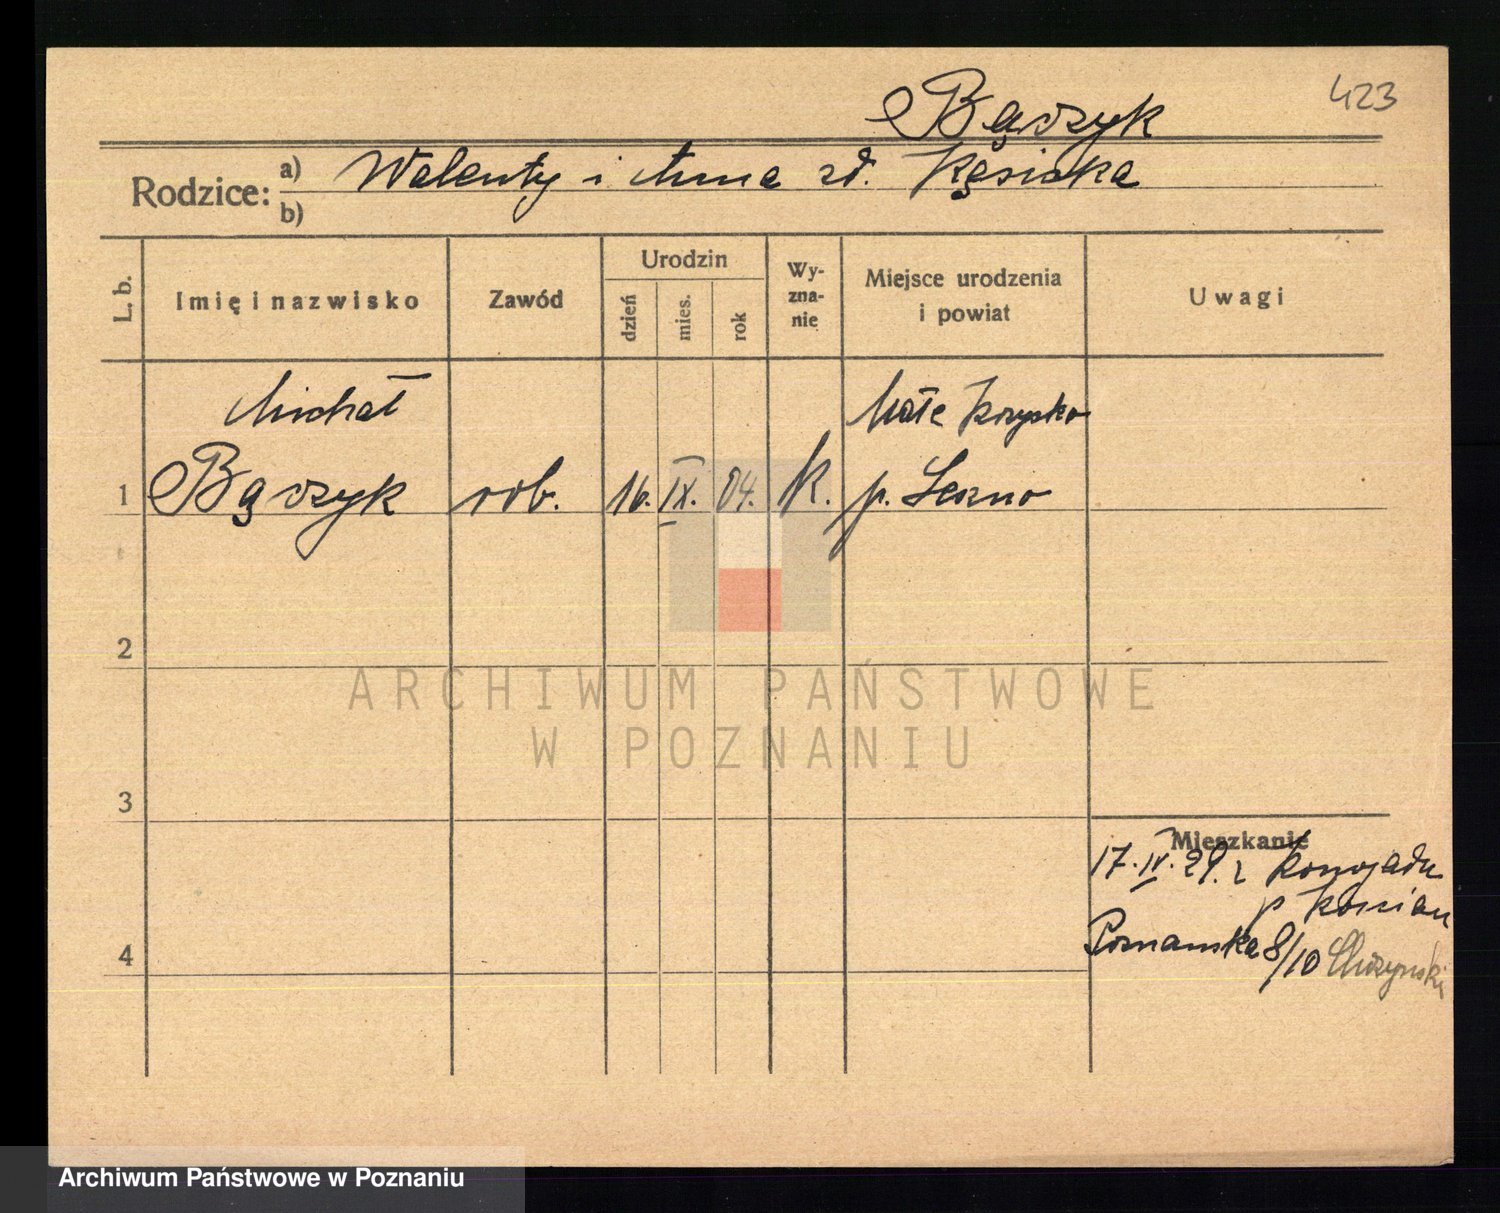 423
Bączyk
Rodzice: a) Walenty i Anna zd. Kąsiaka
b)
L. b.
Imię i nazwisko
Zawód
Urodzin
dzień
mies.
rok
Wy-
zna-
nie
Miejsce urodzenia
i powiat
Uwagi
Michał Małe
1 Bączyk rob. 16. IX. 04. k. p. Leszno
2
3
4
Mieszkanie
17. IV. 29. z Konojadu
p Kościan
Poznańska 8/10
ARCHIWUM PAŃSTWOWE
W POZNANIU
Archiwum Państwowe w Poznaniu